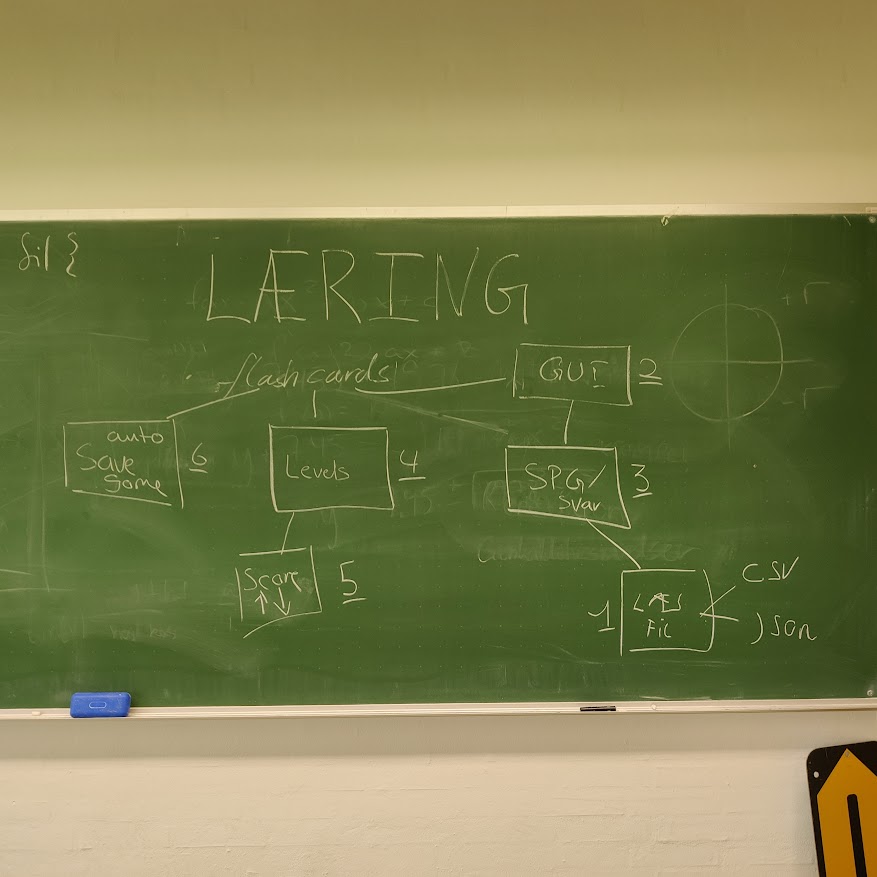 fil }
LÆRING
flashcards
GUI 2
auto
Save
game
6
Levels 4
SPG/
svar
3
Score
↑↓
5
1
LÆS
FIL
CSV
JSON